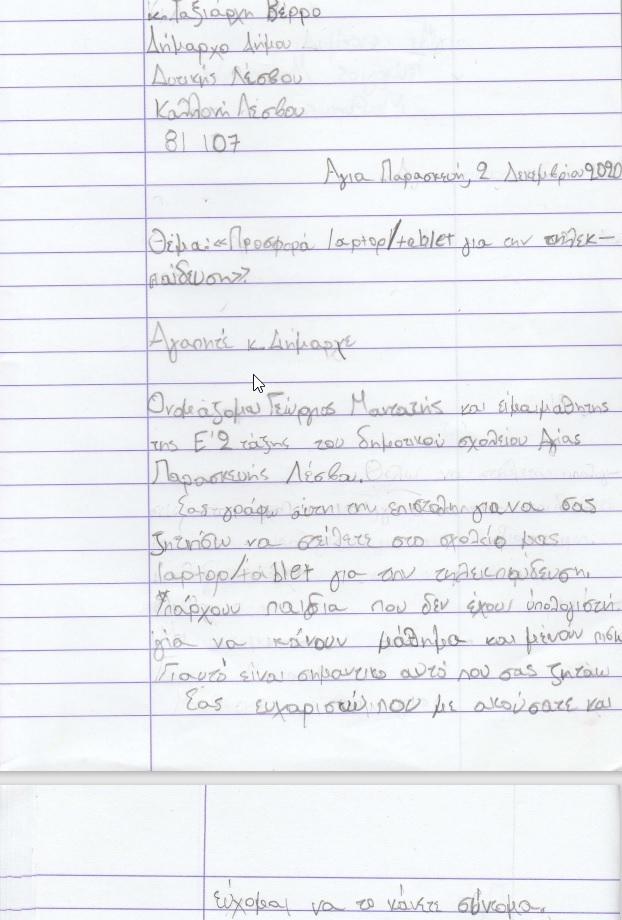 κ. Ταξιάρχη Βέρρο
Δήμαρχο Δήμου
Δυτικής Λέσβου
Καλλονή Λέσβου
81 107
Αγια Παρασκευή, 2 Δεκεμβρίου 2020
Θέμα: «Προσφορά laptop/tablet για την τηλεκ-
παίδευση»
Αγαπητέ κ. Δήμαρχε
Ονομάζομαι Γεώργιος και είμαι μαθητης
της Ε'2 τάξης του δημοτικού σχολείου Αγίας
Παρασκευής Λέσβου.
Σας γράφω αυτή την επιστολή για να σας
ζητήσω να στείλετε στο σχολείο μας
laptop/tablet για την τηλεκπαίδευση.
Υπάρχουν παιδια που δεν έχουν υπολογιστή
για να κάνουν μάθημα και μένουν πισω
Γιαυτό είναι σημαντικο αυτό που σας ζητάω
Σας ευχαριστώ που με ακούσατε και
εύχομαι να το κάνετε σύντομα.